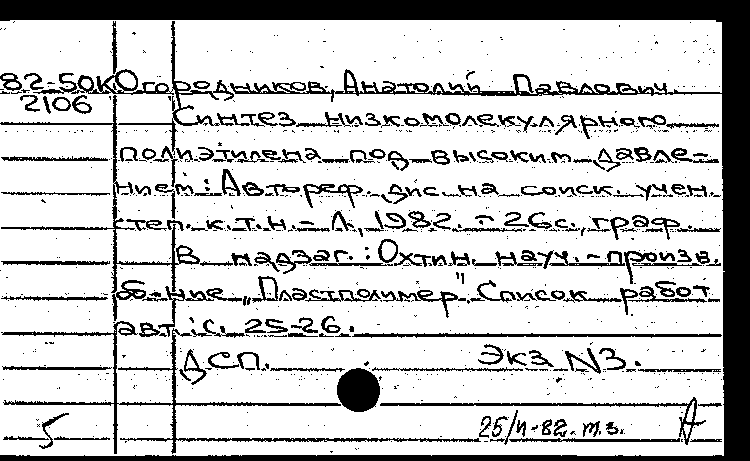 82-50К Огородников, Анатолий Павлович.
2106
Синтез низкомолекулярного
полиэтилена под высоким давле-
нием: Автореф. дис. на соиск. учен.
степ. к.т.н. - Л., 1982. - 26с., граф.
В надзаг.: Охтин. науч.-произв.
об-ние „Пластполимер". Список работ
авт.: с. 25-26.
ДСП. Экз. N3.
5 25/V-82. т.з.